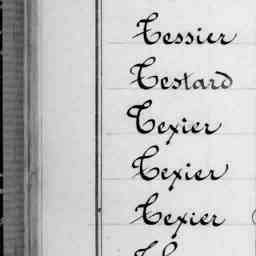 Tessier
Testard
Texier
Texier
Texier